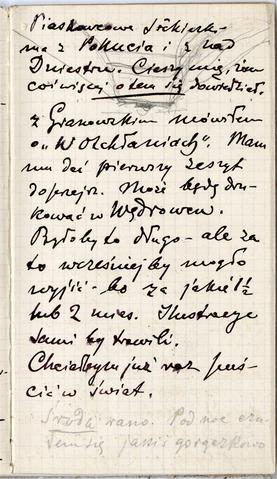 Piaskowcowe Siekier-
ma z Pokucia i z nad
Dniestru. Cieszy mię, żem
coś więcej o tem się dowiedział.
Z Granowskim mówiłem
o „W Otchłaniach". Mam
mu dać pierwszy zeszyt
do przejrz. Może będą dru-
kować w Wędrowcu.
Byłoby to długo - ale za
to wcześniej by mogło
wyjść - bo za jakie 1½
lub 2 mies. Ilustracje
sami by trawili.
Chciałbym już raz puś-
cić w świat.
Środa rano. Pod noc czu-
łem się jakiś gorączkowo